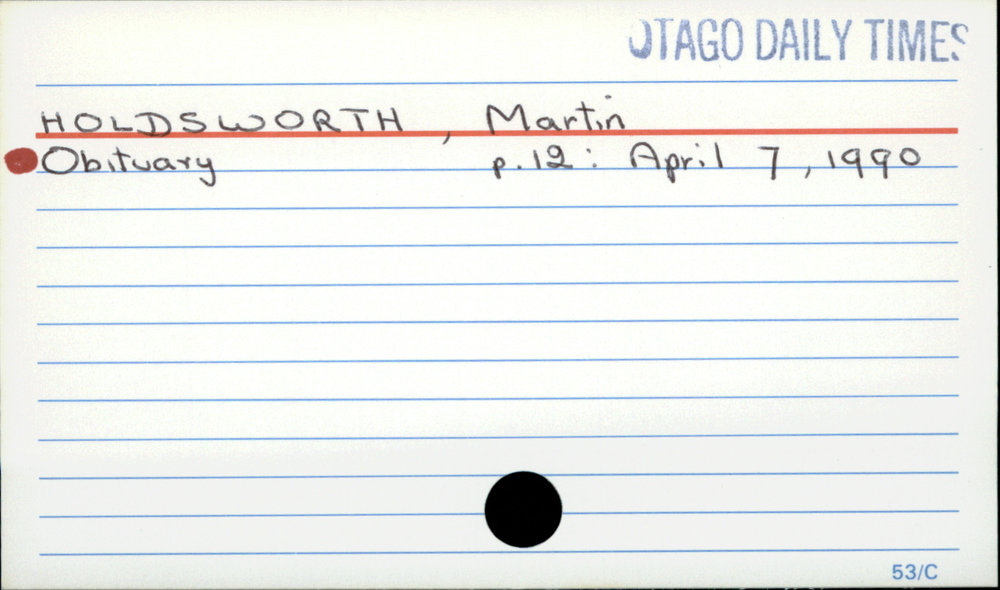 OTAGO DAILY TIMES
HOLDSWORTH, Martin
Obituary p.12: April 7, 1990
53/C